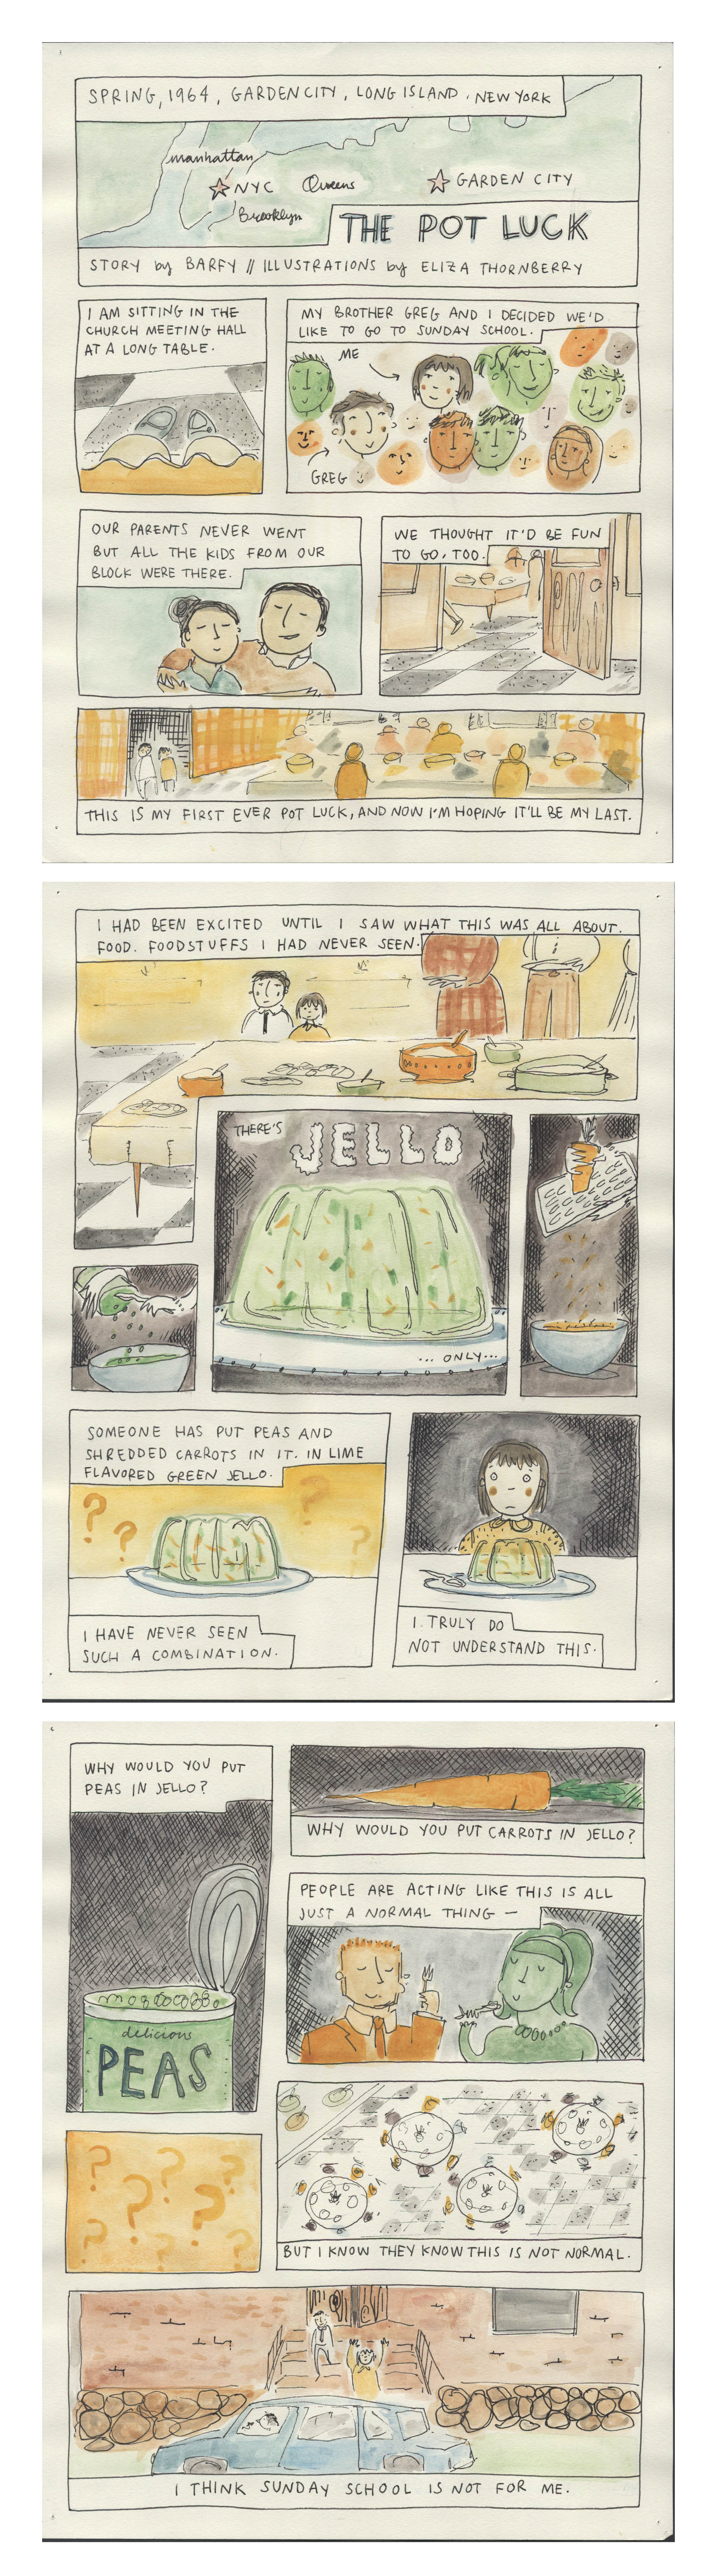 SPRING, 1964, GARDEN CITY, LONG ISLAND, NEW YORK
manhattan
NYC
Queens
GARDEN CITY
Brooklyn
THE POT LUCK
STORY by BARFY // ILLUSTRATIONS by ELIZA THORNBERRY
I AM SITTING IN THE
CHURCH MEETING HALL
AT A LONG TABLE.
MY BROTHER GREG AND I DECIDED WE'D
LIKE TO GO TO SUNDAY SCHOOL.
ME
GREG
OUR PARENTS NEVER WENT
BUT ALL THE KIDS FROM OUR
BLOCK WERE THERE.
WE THOUGHT IT'D BE FUN
TO GO, TOO.
THIS IS MY FIRST EVER POT LUCK, AND NOW I'M HOPING IT'LL BE MY LAST.
I HAD BEEN EXCITED UNTIL I SAW WHAT THIS WAS ALL ABOUT.
FOOD. FOODSTUFFS I HAD NEVER SEEN.
THERE'S JELLO
... ONLY...
SOMEONE HAS PUT PEAS AND
SHREDDED CARROTS IN IT. IN LIME
FLAVORED GREEN JELLO.
? ? ? ?
I HAVE NEVER SEEN
SUCH A COMBINATION.
I TRULY DO
NOT UNDERSTAND THIS.
WHY WOULD YOU PUT
PEAS IN JELLO?
delicious
PEAS
WHY WOULD YOU PUT CARROTS IN JELLO?
PEOPLE ARE ACTING LIKE THIS IS ALL
JUST A NORMAL THING —
? ? ? ? ? ? ?
BUT I KNOW THEY KNOW THIS IS NOT NORMAL.
I THINK SUNDAY SCHOOL IS NOT FOR ME.